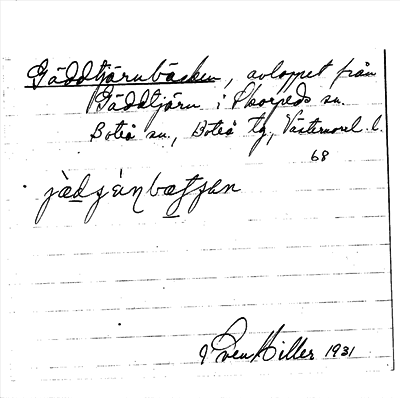 Gäddtjärnbäcken, avloppet från
Gäddtjärn i Skorpeds sn.
Boteå sn., Boteå tg, Västernorrl. l.
68
Sven Hiller 1931